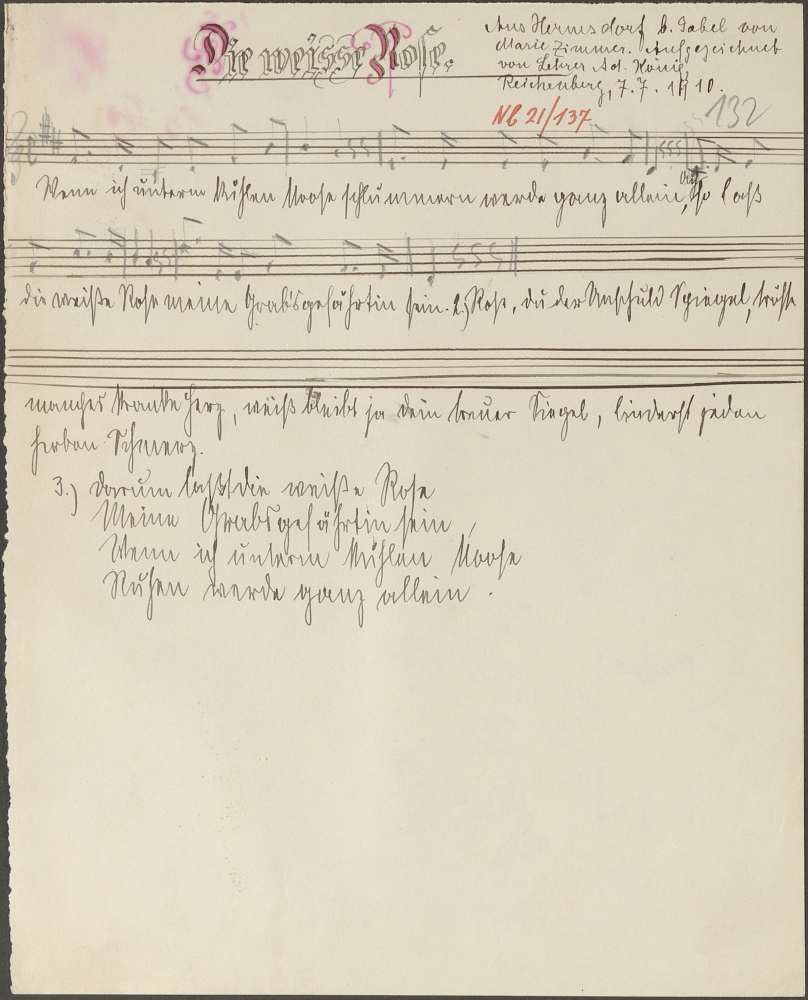 Die weisse Rose.
Aus Hermsdorf b. Gabel von
Marie Zimmer. Aufgezeichnet
von Lehrer Ad. König,
Reichenberg, 7. 7. 1910.
Nb 21/137
132
Wenn ich unterm kühlen Moose schlummern werde ganz allein, so laß
die weiße Rose meine Grabsgefährtin sein. 2.) Rose, du der Unschuld Spiegel,
manches kranke Herz, weiß bleibt ja dein treuer Siegel, linderst jeden
herben Schmerz.
3.) Darum laßt die weiße Rose
Meine Grabsgefährtin sein,
Wenn ich unterm kühlen Moose
Ruhen werde ganz allein.